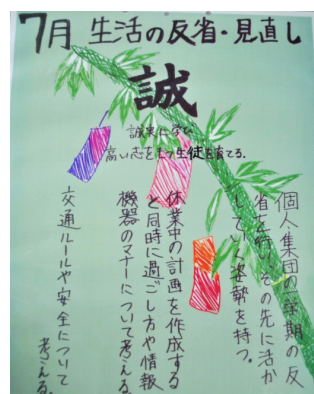 7月 生活の反省・見直し
誠
誠実に学び
高い志をもつ生徒を育てる.
個人・集団の学期の反
省を行い、その先に活か
していく姿勢を持つ。
休業中の計画を作成する
と同時に過ごし方や情報
機器のマナーについて考える.
交通ルールや安全について
考える.